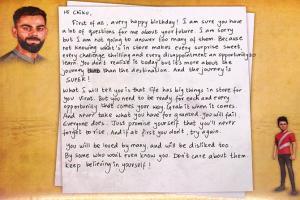 Hi Chiku,
First of all, a very happy birthday! I am sure you have
a lot of questions for me about your future. I am sorry
but I am not going to answer too many of them. Because
not knowing what's in store makes every surprise sweet,
every challenge thrilling and every disappointment an opportunity to
learn. You don't realize it today but it's more about the
journey than the destination. And the journey is
SUPER!
What I will tell you is that life has big things in store for
you Virat. But you need to be ready for each and every
opportunity that comes your way. Grab it when it comes
And never take what you have for granted. You will fail
Everyone does. Just promise yourself that you'll never
forget to rise. And if at first you don't, try again.
You will be loved by many, and will be disliked too
By some who don't even know you. Don't care about them
keep believing in yourself!